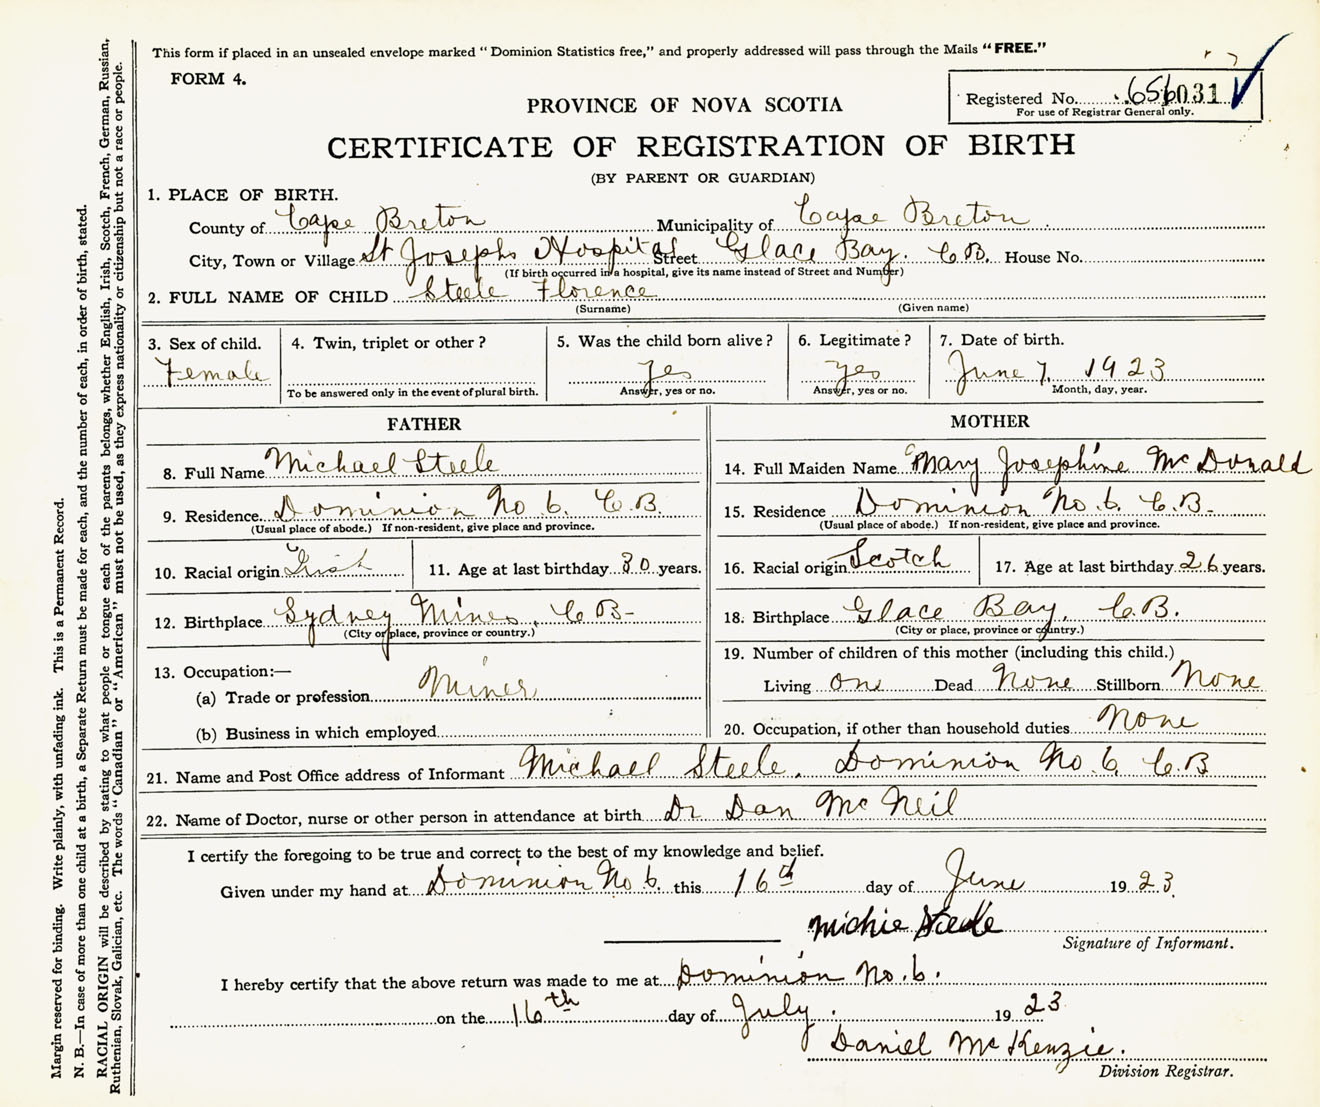 This form if placed in an unsealed envelope marked “Dominion Statistics free,” and properly addressed will pass through the Mails “FREE.”
FORM 4.
Registered No. 031
For use of Registrar General only.
PROVINCE OF NOVA SCOTIA
CERTIFICATE OF REGISTRATION OF BIRTH
(BY PARENT OR GUARDIAN)
1. PLACE OF BIRTH.
County of Cape Breton Municipality of Cape Breton
City, Town or Village St Josephs Hospital Street Glace Bay. C.B. House No.
(If birth occurred in a hospital, give its name instead of Street and Number)
2. FULL NAME OF CHILD Steele Florence
(Surname) (Given name)
3. Sex of child. 4. Twin, triplet or other? 5. Was the child born alive? 6. Legitimate? 7. Date of birth.
Female yes yes June 7, 1923
To be answered only in the event of plural birth. Answer, yes or no. Answer, yes or no. Month, day, year.
FATHER
8. Full Name Michael Steele
9. Residence Dominion No 6. C.B.
(Usual place of abode.) If non-resident, give place and province.
10. Racial origin Irish 11. Age at last birthday 30 years.
12. Birthplace Sydney Mines, C B-
(City or place, province or country.)
13. Occupation:—
(a) Trade or profession Miner
(b) Business in which employed
MOTHER
14. Full Maiden Name Mary Josephine McDonald
15. Residence Dominion No 6 C.B-
(Usual place of abode.) If non-resident, give place and province.
16. Racial origin Scotch 17. Age at last birthday 26 years.
18. Birthplace Glace Bay, C.B.
(City or place, province or country.)
19. Number of children of this mother (including this child.)
Living one Dead None Stillborn None
20. Occupation, if other than household duties None
21. Name and Post Office address of Informant Michael Steele, Dominion No. 6 C.B
22. Name of Doctor, nurse or other person in attendance at birth Dr Dan McNeil
I certify the foregoing to be true and correct to the best of my knowledge and belief.
Given under my hand at Dominion No 6. this 16th day of June 1923
Michie Steele
Signature of Informant.
I hereby certify that the above return was made to me at Dominion No. 6.
on the 16th day of July. 1923
Daniel McKenzie.
Division Registrar.
Margin reserved for binding. Write plainly, with unfading ink. This is a Permanent Record.
N. B.—In case of more than one child at a birth, a Separate Return must be made for each, and the number of each, in order of birth, stated.
RACIAL ORIGIN will be described by stating to what people or tongue each of the parents belongs, whether English, Irish, Scotch, French, German, Russian,
Ruthenian, Slovak, Galician, etc. The words “Canadian” or “American” must not be used, as they express nationality or citizenship but not a race or people.